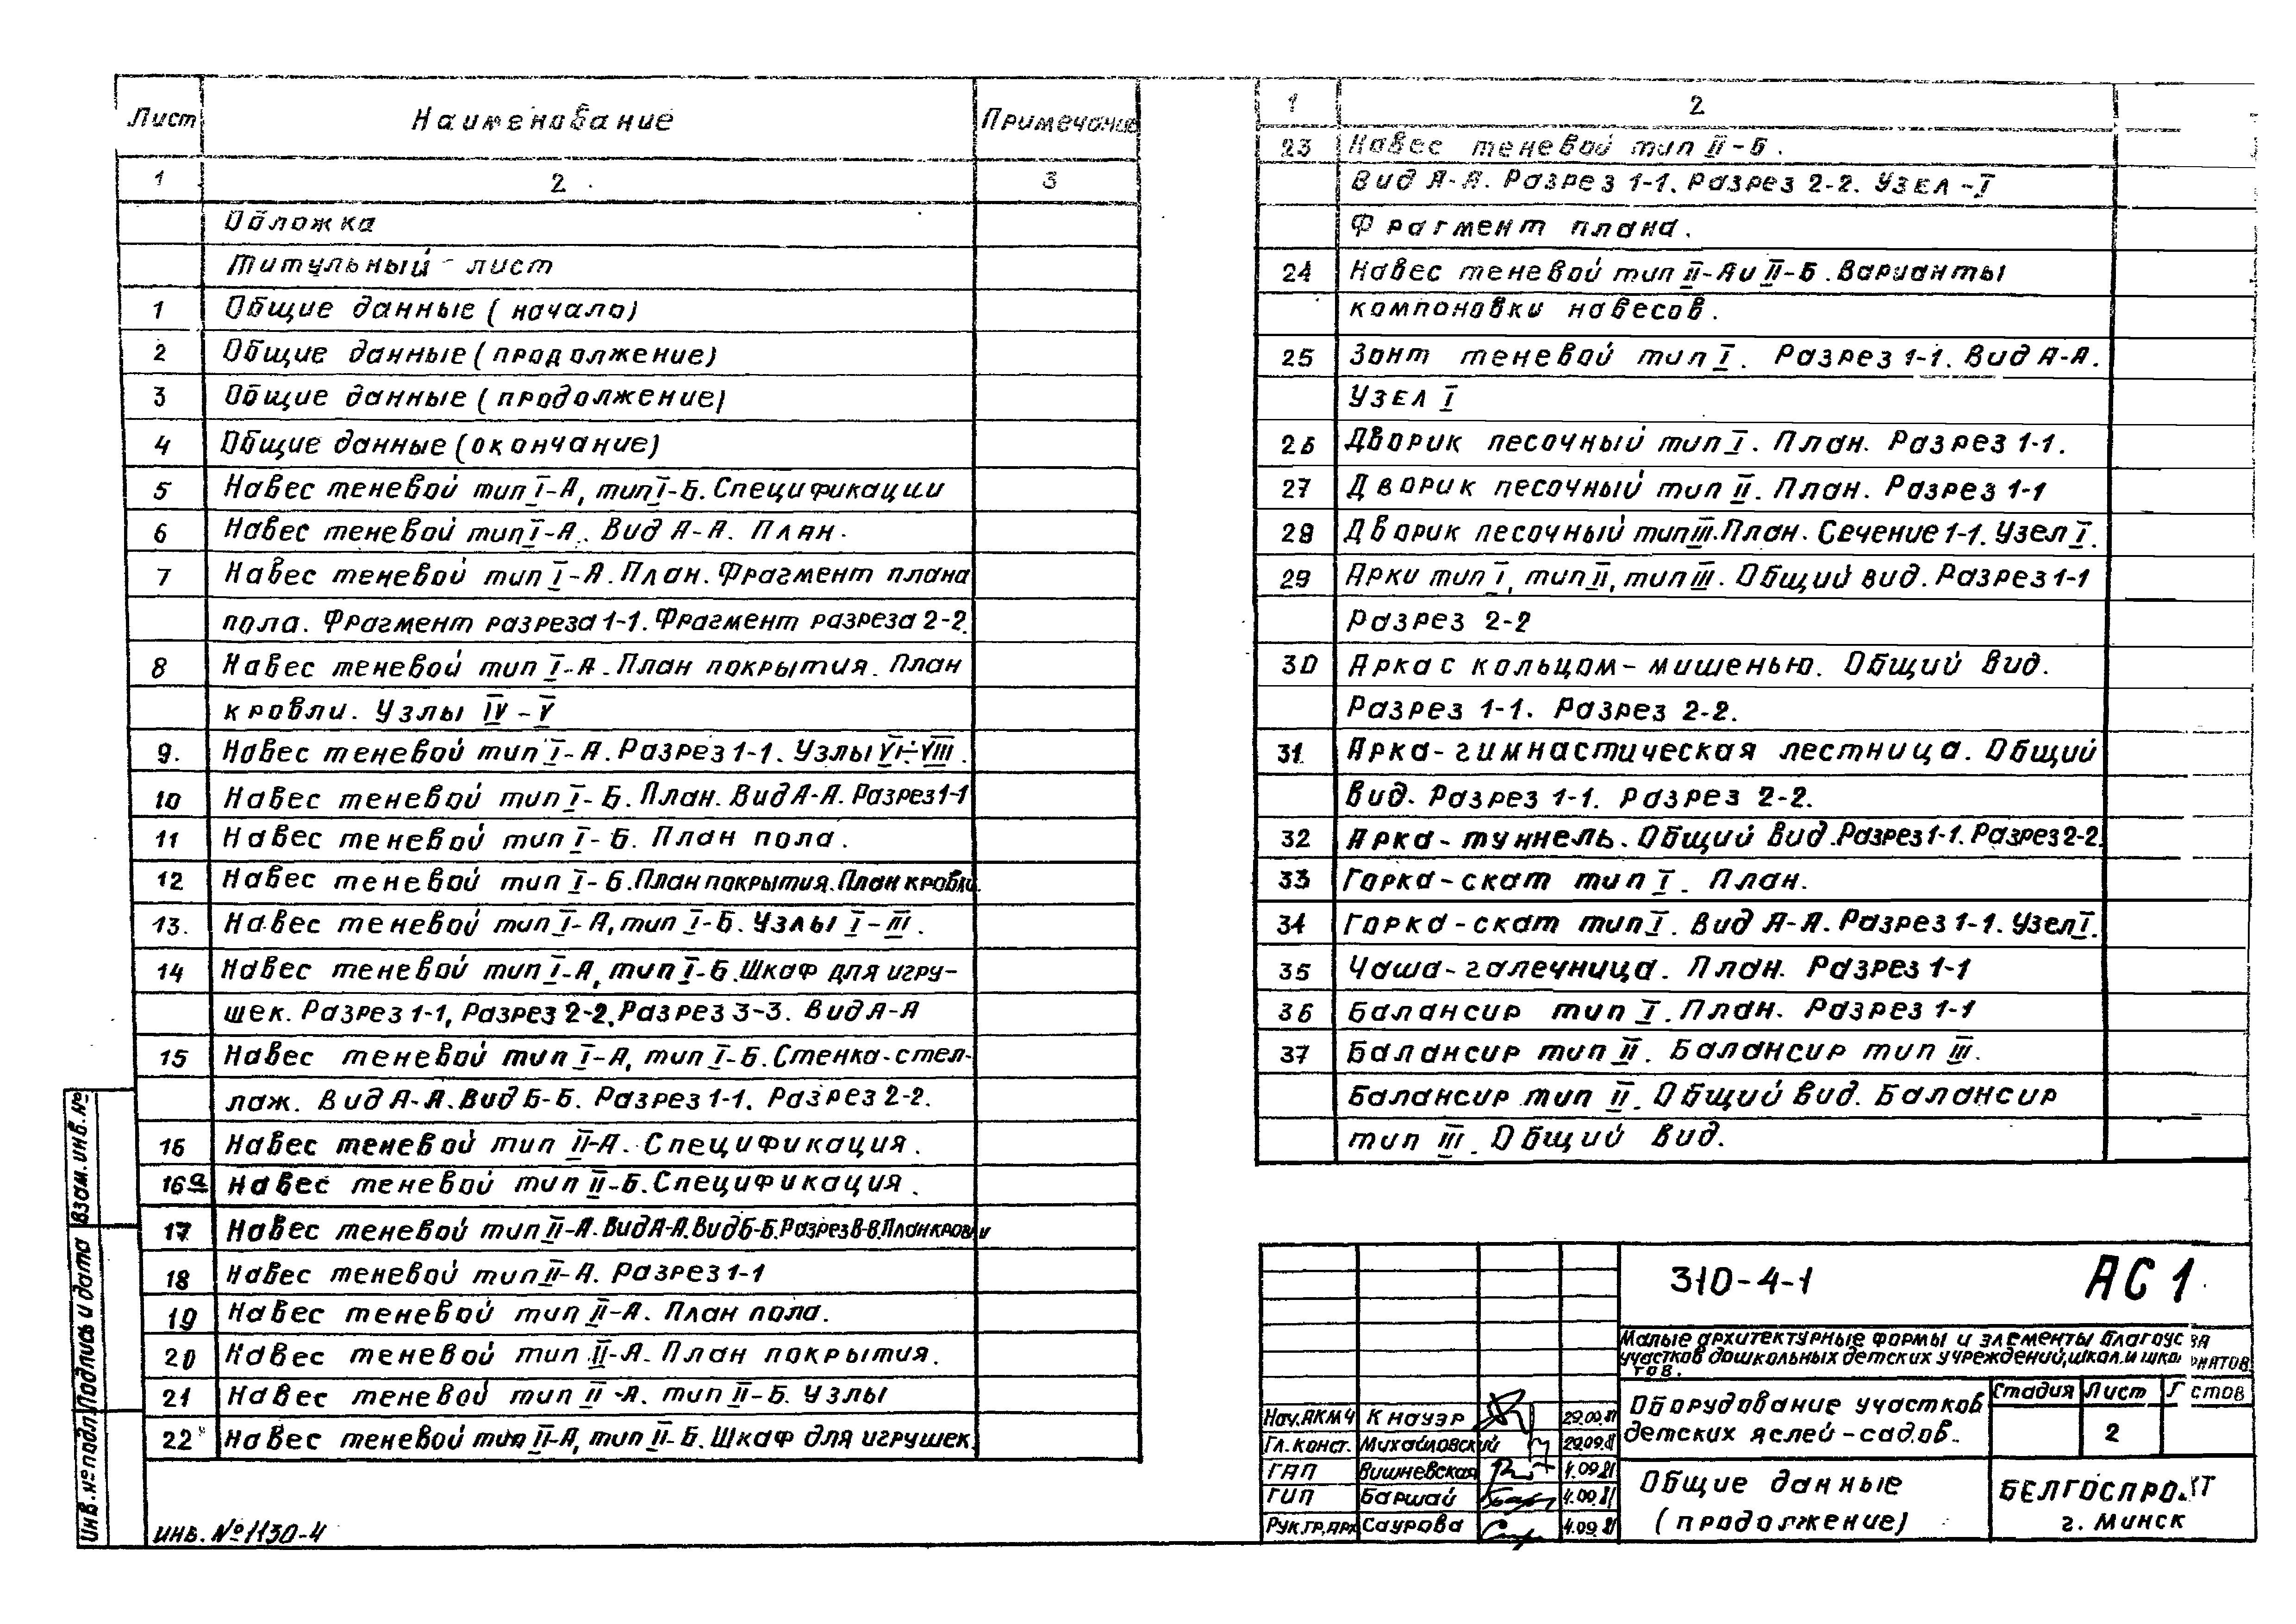 Лист Наименование Примечание
1 2 3
Обложка
Титульный лист
1 Общие данные (начало)
2 Общие данные (продолжение)
3 Общие данные (продолжение)
4 Общие данные (окончание)
5 Навес теневой тип I-А, тип I-Б. Спецификации
6 Навес теневой тип I-А. Вид А-А. План.
7 Навес теневой тип I-А. План. Фрагмент плана
пола. Фрагмент разреза 1-1. Фрагмент разреза 2-2.
8 Навес теневой тип I-А. План покрытия. План
кровли. Узлы IV-V
9. Навес теневой тип I-А. Разрез 1-1. Узлы VI÷VIII.
10 Навес теневой тип I-Б. План. Вид А-А. Разрез 1-1
11 Навес теневой тип I-Б. План пола.
12 Навес теневой тип I-Б. План покрытия. План кровли.
13. Навес теневой тип I-А, тип I-Б. Узлы I-III.
14 Навес теневой тип I-А, тип I-Б. Шкаф для игру-
шек. Разрез 1-1, Разрез 2-2, Разрез 3-3. Вид А-А
15 Навес теневой тип I-А, тип I-Б. Стенка-стел-
лаж. Вид А-А. Вид Б-Б. Разрез 1-1. Разрез 2-2.
16 Навес теневой тип II-А. Спецификация.
16а Навес теневой тип II-Б. Спецификация.
17 Навес теневой тип II-А. Вид А-А. Вид Б-Б. Разрез В-В. План кровли
18 Навес теневой тип II-А. Разрез 1-1
19 Навес теневой тип II-А. План пола.
20 Навес теневой тип II-А. План покрытия.
21 Навес теневой тип II-А. тип II-Б. Узлы
22 Навес теневой тип II-А, тип II-Б. Шкаф для игрушек.
1 2
23 Навес теневой тип II-Б.
Вид А-А. Разрез 1-1. Разрез 2-2. Узел-I
Фрагмент плана.
24 Навес теневой тип II-А и II-Б. Варианты
компоновки навесов.
25 Зонт теневой тип I. Разрез 1-1. Вид А-А.
Узел I
26 Дворик песочный тип I. План. Разрез 1-1.
27 Дворик песочный тип II. План. Разрез 1-1
28 Дворик песочный тип III. План. Сечение 1-1. Узел I.
29 Арки тип I, тип II, тип III. Общий вид. Разрез 1-1
Разрез 2-2
30 Арка с кольцом-мишенью. Общий вид.
Разрез 1-1. Разрез 2-2.
31 Арка-гимнастическая лестница. Общий
вид. Разрез 1-1. Разрез 2-2.
32 Арка-туннель. Общий вид. Разрез 1-1. Разрез 2-2.
33 Горка-скат тип I. План.
34 Горка-скат тип I. Вид А-А. Разрез 1-1. Узел I.
35 Чаша-галечница. План. Разрез 1-1
36 Балансир тип I. План. Разрез 1-1
37 Балансир тип II. Балансир тип III.
Балансир тип II. Общий вид. Балансир
тип III. Общий вид.
Взам. инв. №
Подпись и дата
Инв. № подл.
инв. № 1130-4
310-4-1 АС 1
Малые архитектурные формы и элементы благоус ва
участков дошкольных детских учреждений, школ и шко рнатов
тов.
Оборудование участков
детских яслей-садов.
Стадия Лист стов
2
Нач. АКМ4 Кнауэр 29.09.81
Гл. конст. Михайловский 29.09.81
ГАП Вишневская 4.09.81
ГИП Баршай 4.09.81
Рук. гр. арх Саурова 4.09.81
Общие данные
(продолжение)
БЕЛГОСПРОЕКТ
г. Минск